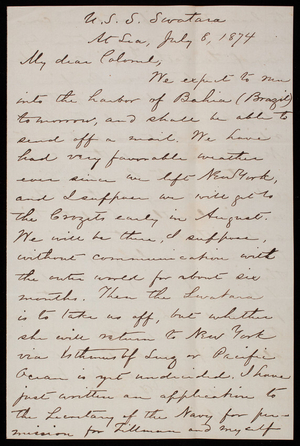 U.S.S. Swatara
At Sea, July 6, 1874
My dear Colonel,
We expect to run
into the harbor of Bahia (Brazil)
tomorrow, and shall be able to
send off a mail. We have
had very favorable weather
ever since we left New York,
and I suppose we will get to
the Crozets early in August.
We will be there, I suppose,
without communication with
the outer world for about six
months. Then the Swatara
is to take us off, but whether
she will return to New York
via Isthmus of Suez or Pacific
Ocean is yet undecided. I have
just written an application to
the Secretary of the Navy for per-
mission for Tillman and myself